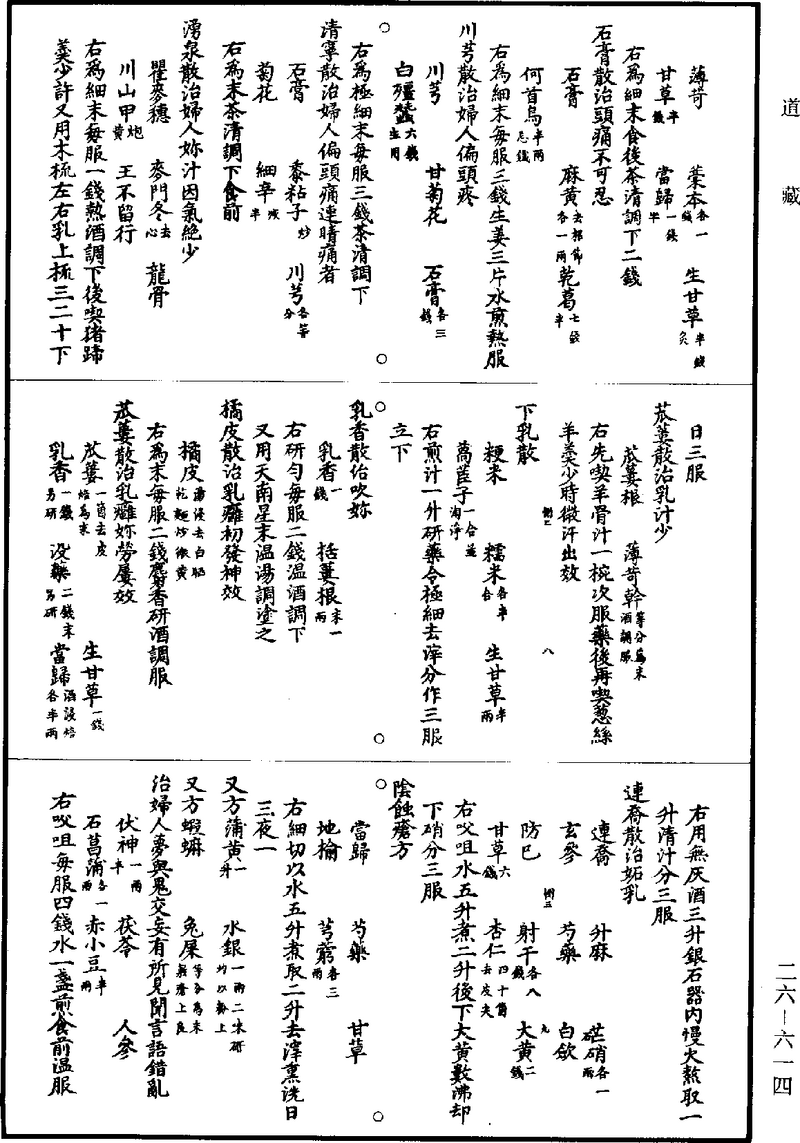 道藏
薄苛　藁本各一錢　生甘草半錢炙
甘草半錢　當歸一錢半
右為細末食後茶清調下二錢
石膏散治頭痛不可忍
石膏　麻黃去根節各一兩　乾葛七錢半
何首烏半兩
右為細末每服三錢生姜三片水煎熱服
川芎散治婦人偏頭疼
川芎　甘菊花　石膏各三錢
白殭蠶六錢生用
右為極細末每服三錢茶清調下
清寧散治婦人偏頭痛連睛痛者
石膏　黍粘子炒　川芎各等分
菊花　細辛減半
右為末茶清調下食前
湧泉散治婦人妳汁因氣絶少
瞿麥穗　麥門冬去心　龍骨
川山甲炮黃　王不留行
右為細末每服一錢熱酒調下後喫猪蹄
羹少許又用木梳左右乳上梳三二十下
日三服
苽蔞散治乳汁少
苽蔞根　薄苛幹等分為末酒調服
右先喫羊骨汁一椀次服藥後再喫葱絲
羊羹少時微汗出效
下乳散
粳米　糯米各半合　生甘草半兩
萵苣子一合並淘淨
右煎汁一升研藥令極細去滓分作三服
立下
乳香散治吹妳
乳香一錢　括蔞根末一兩
右研勻每服二錢温酒調下
又用天南星末温湯調塗之
橘皮散治乳癰初發神效
橘皮湯浸去白晒乾麵炒微黃
右為末每服二錢麝香研酒調服
苽蔞散治乳癰妳勞屢效
苽蔞一箇去皮焙為末　生甘草一錢
乳香一錢另研　没藥二錢末另研　當歸酒浸焙各半兩
右用無灰酒三升銀石器内慢火熬取一
升清汁分三服
連喬散治妬乳
連喬　升麻　芒硝各一兩
玄參　芍藥　白歛
防巳　射干各八錢　大黃二錢
甘草六錢　杏仁四十箇去皮尖
右㕮咀水五升煮二升後下大黃數沸却
下硝分三服
陰蝕瘡方
當歸　芍藥　甘草
地榆　芎藭各三兩
右細切以水五升煮取二升去滓熏洗日
三夜一
又方蒲黃一升　水銀一兩二味研勻以粉上
又方蝦蟆　兔屎等分為末
治婦人夢與鬼交妄有所見聞言語錯亂
伏神一兩半　茯苓　人參
石菖蒲各一兩　赤小豆半兩
右㕮咀每服四錢水一盞煎食前温服
二六—六一四